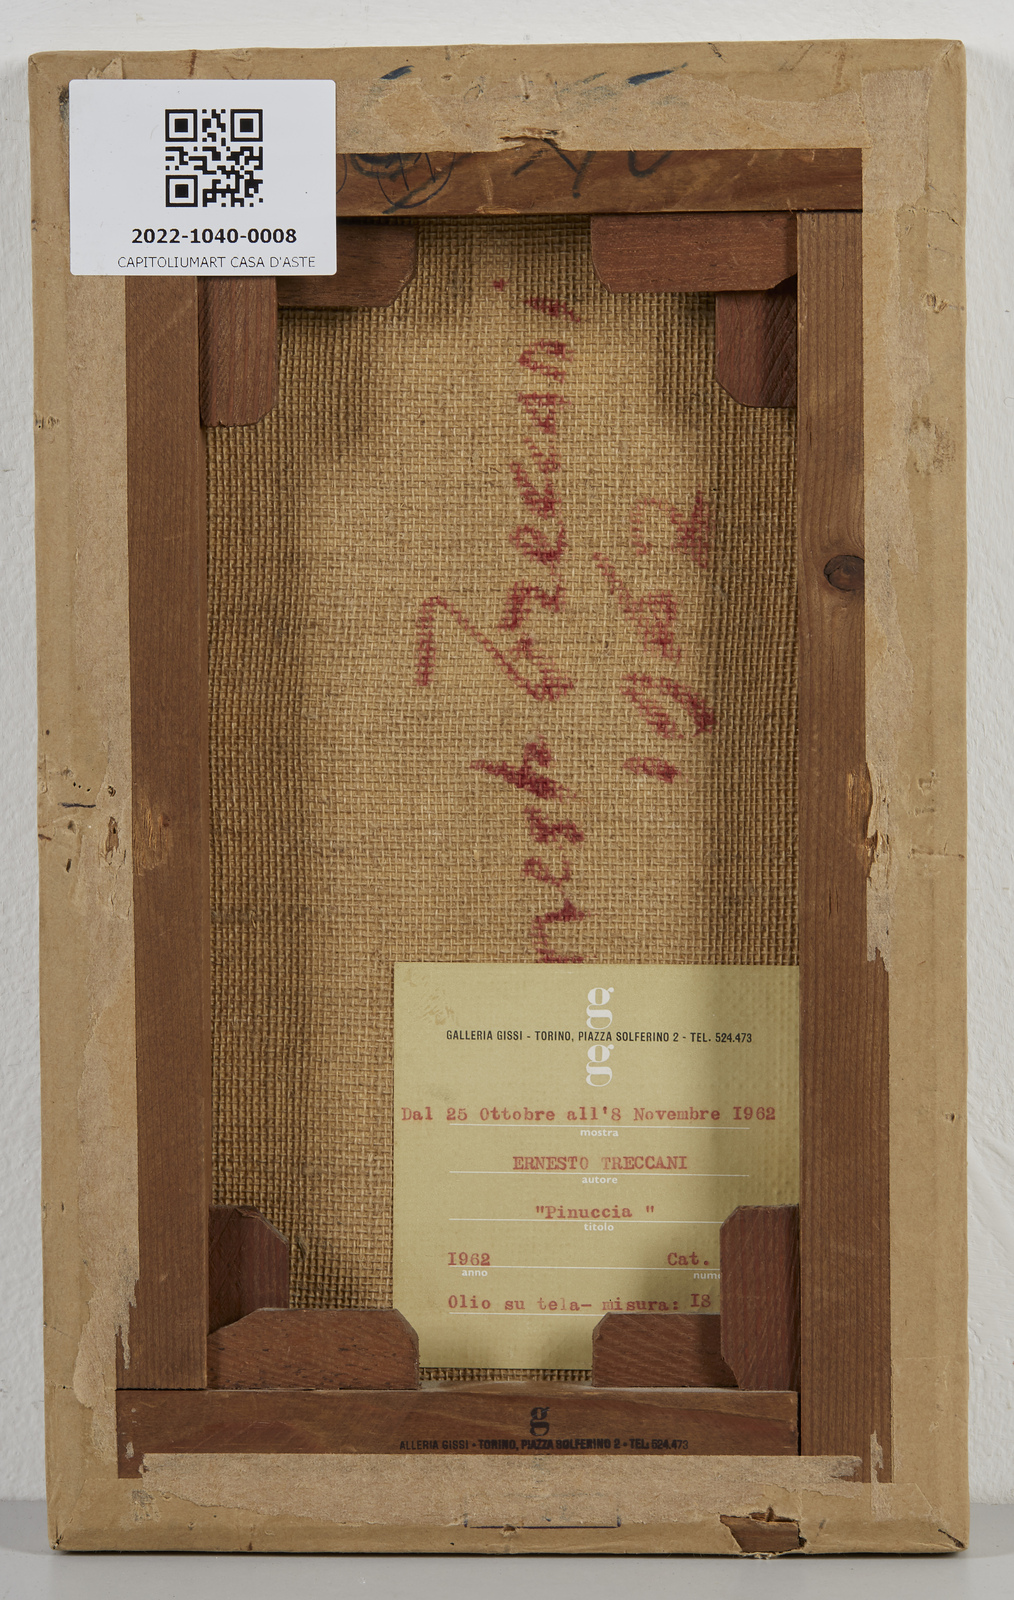 2022-1040-0008
CAPITOLIUMART CASA D'ASTE
Treccani
1962
g
GALLERIA GISSI - TORINO, PIAZZA SOLFERINO 2 - TEL. 524.473
g
Dal 25 Ottobre all'8 Novembre I962
mostra
ERNESTO TRECCANI
autore
"Pinuccia "
titolo
I962 Cat.
anno nume
Olio su tela- misura: I8
g
ALLERIA GISSI - TORINO, PIAZZA SOLFERINO 2 - TEL. 524.473